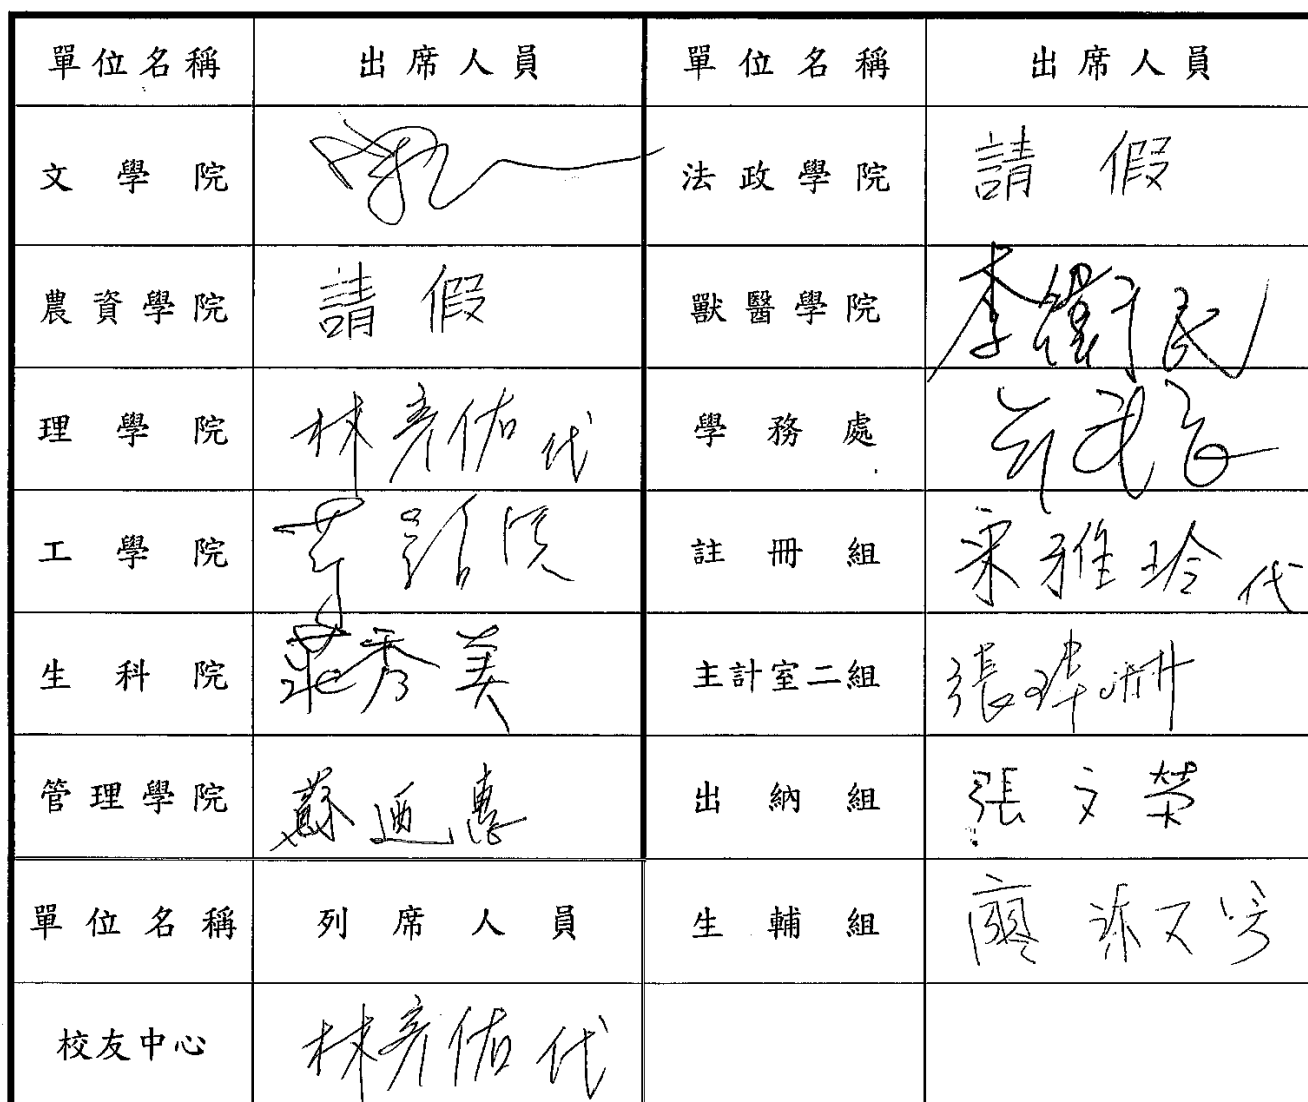 單位名稱 出席人員 單位名稱 出席人員
文學院 法政學院 請假
農資學院 請假 獸醫學院 李衛民
理學院 林彥佑代 學務處
工學院 註冊組 宋雅玲代
生科院 秀美 主計室二組 張瑋
管理學院 蘇迺惠 出納組 張文榮
單位名稱 列席人員 生輔組 廖
校友中心 林彥佑代